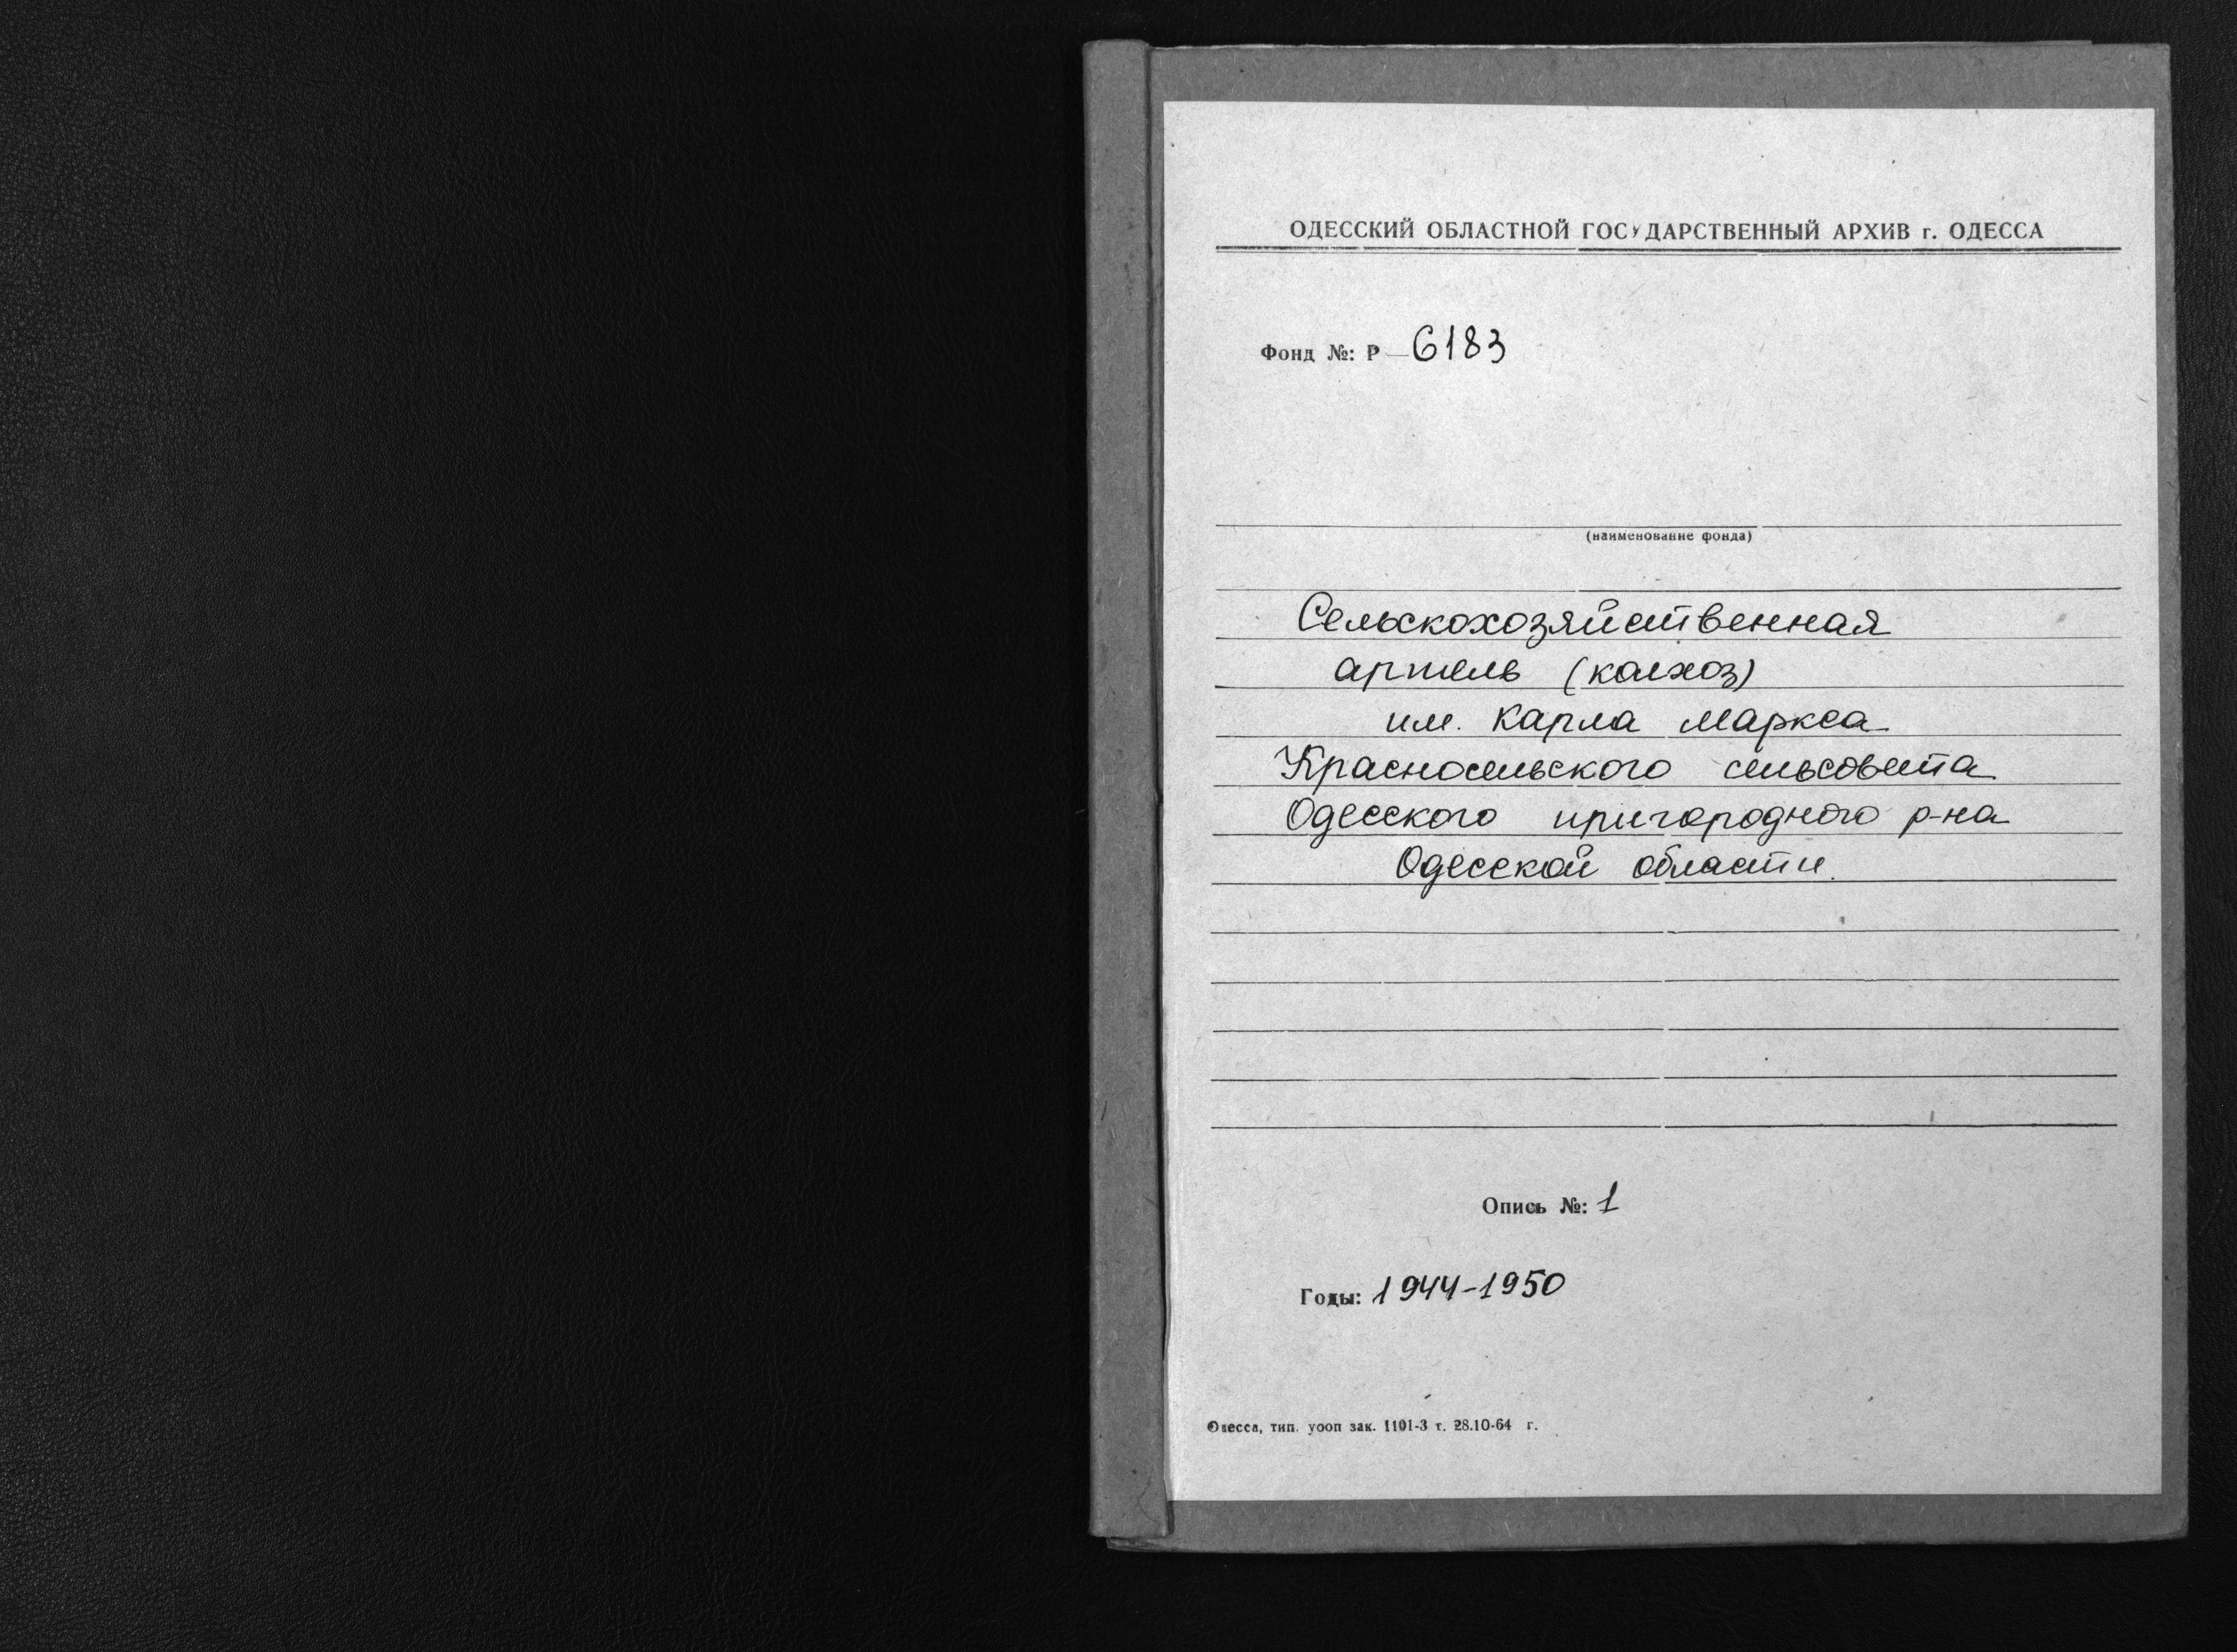 ОДЕССКИЙ ОБЛАСТНОЙ ГОСУДАРСТВЕННЫЙ АРХИВ г. ОДЕССА
Фонд №: Р — 6183
(наименование фонда)
Сельскохозяйственная
артель (колхоз)
им. Карла Маркса
Красносельского сельсовета
Одесского пригородного р-на
Одесской области.
Опись №: 1
Годы: 1944-1950
Одесса, тип. уооп зак. 1101-3 т. 28.10-64 г.